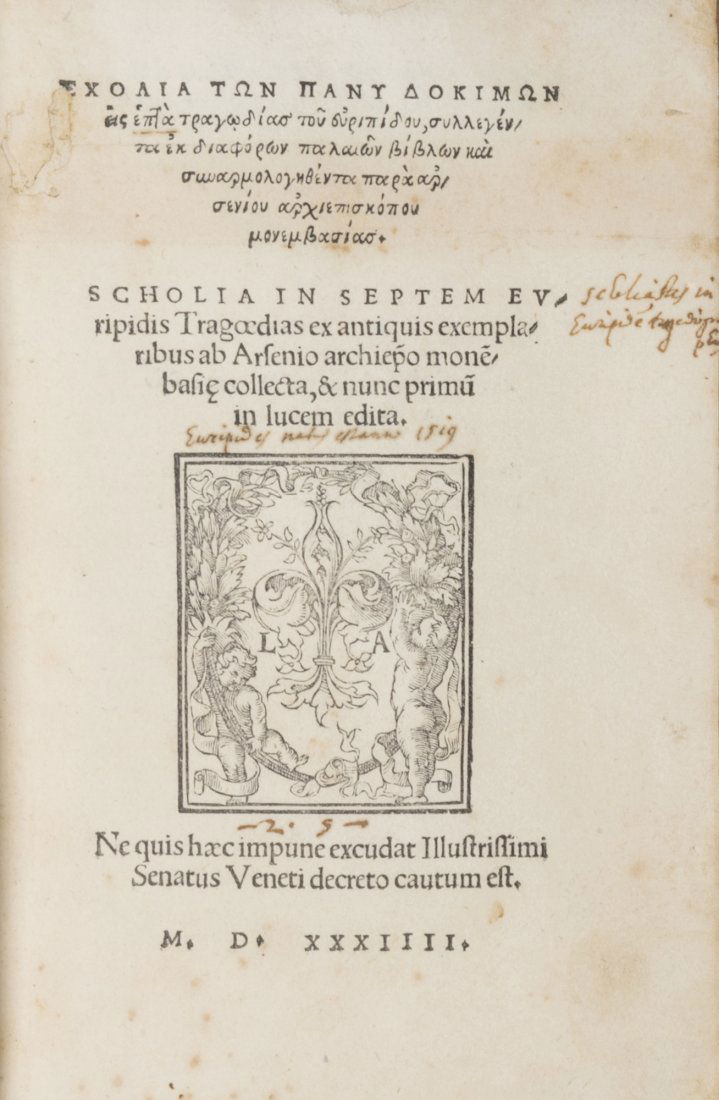 ΣΧΟΛΙΑ ΤΩΝ ΠΑΝΥ ΔΟΚΙΜΩΝ
εἰς ἑπτὰ τραγῳδίας τοῦ εὐριπίδου, συλλεγέν/
τα ἐκ διαφόρων παλαιῶν βίβλων καὶ
συναρμολογηθέντα παρὰ ἀρ/
σενίου ἀρχιεπισκόπου
μονεμβασίας.
SCHOLIA IN SEPTEM EV/
ripidis Tragœdias ex antiquis exempla/
ribus ab Arſenio archiep̃o monẽ/
baſię collecta, & nunc primũ
in lucem edita.
in
Euripidis 1519
L A
2. 5
Ne quis hæc impune excudat Illuſtriſſimi
Senatus Veneti decreto cautum eſt.
M. D. XXXIIII.